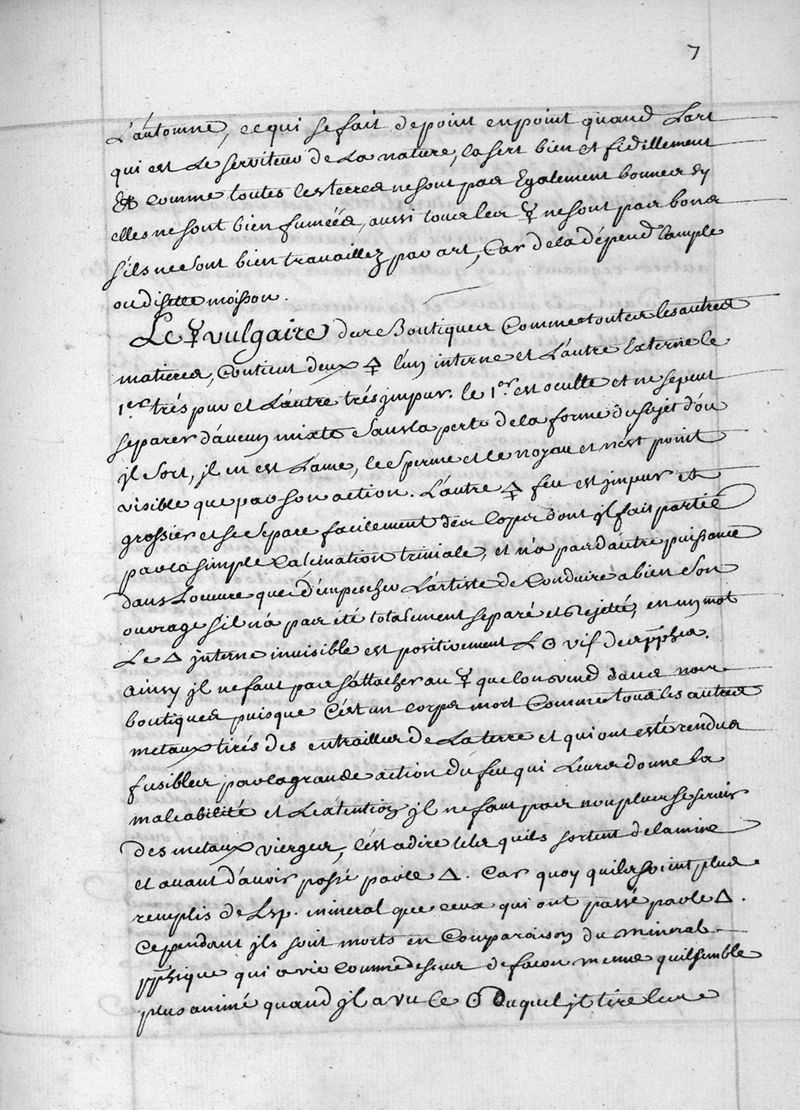 7
L'automne, ce qui se fait de point en point quand L'art
qui est Le serviteur de La nature, la sert bien et fidellement
Et comme toutes les terres ne sont pas Egalement bonnes sy
elles ne sont bien fumées, aussi tous les ☿ ne sont pas bons
s'ils ne sont bien travaillez par art, Car de la dépend l'ample
ou disette moisson.
Le ☿ vulgaire des Boutiques Comme toutes les autres
matieres, Contient deux 🜍 l'un interne et L'autre Externe le
1er trés pur et L'autre trés jmpur. le 1er. est occulte et ne se peut
separer d'aucun mixte sans la perte de la forme du sujet d'ou
jl sort, jl en est L'ame, le Sperme et le noyau et n'est point
visible que par son action. L'autre 🜍 feu est jmpur et
grossier et se separe facilement des Corps dont jl fait partie
par la simple Calcination triviale, et n'a pas d'autre puissance
dans L'oeuvre que d'empescher L'artiste de Conduire a bien son
ouvrage s'il n'a pas été totalement separé et Rejetté, en un mot
Le 🜂 jnterne invisible est positivement L'☉ vif des pphes.
ainsy jl ne faut pas s'attacher au ☿ que lon vend dans nos
boutiques puisque C'est un corps mort Comme tous les autres
metaux tirés des entrailles de La terre et qui ont esté rendus
fusibles par la grande action du feu qui Leurs donne la
maleabilité et L'extention jl ne faut pas non plus se servir
des metaux vierges, c'est a dire tels quils sortent de la mine
et avant d'avoir passé par le 🜂. Car quoy quils soient plus
remplis de L'sp. mineral que ceux qui ont passé par le 🜂.
Cependant jls sont morts en Comparaison du mineral
pphique qui a vie comme dessus de facon mesme quil semble
plus animé quand jl a vu le ☉ Duquel jl tire leur